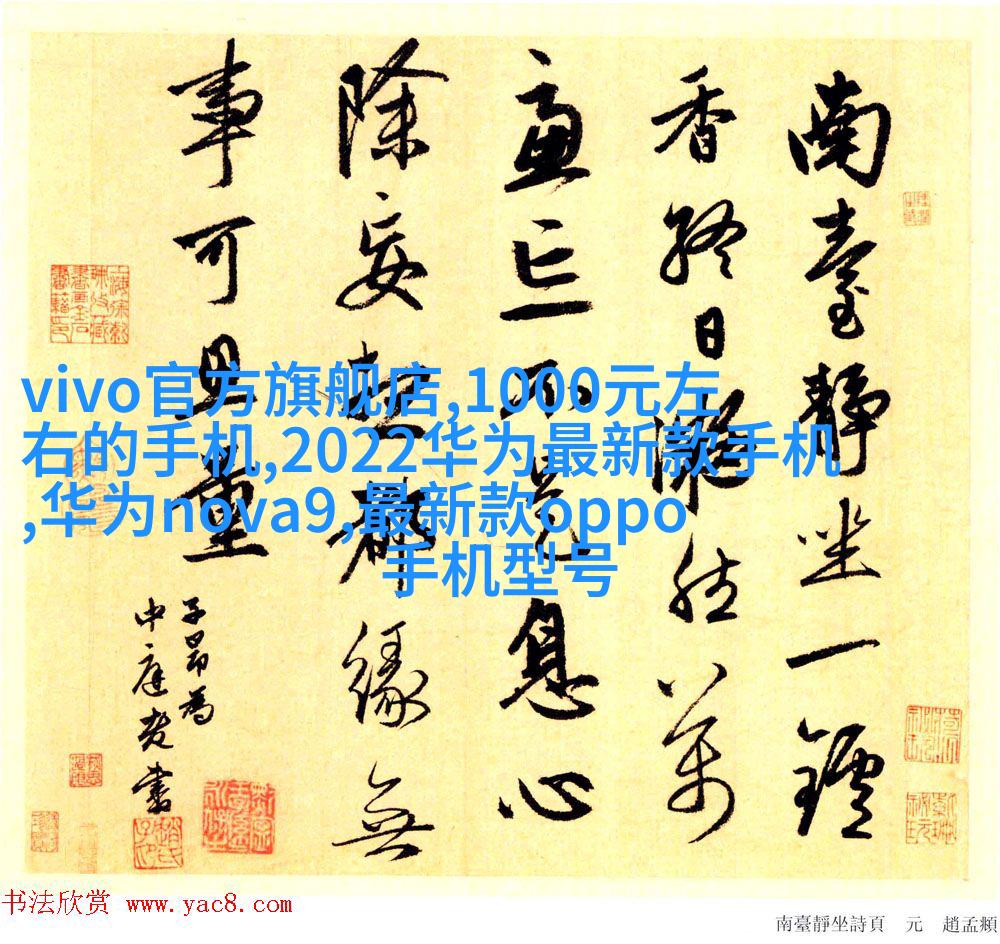 南臺靜坐一鑪
香終日凝然萬
慮亡不是息心
除妄想都緣無
事可思量
子昂為
中庭老書
vivo官方旗舰店,1000元左
右的手机,2022华为最新款手机
,华为nova9,最新款oppo
手机型号
书法欣赏 www.yac8.com
南臺靜坐詩頁 元 趙孟頫